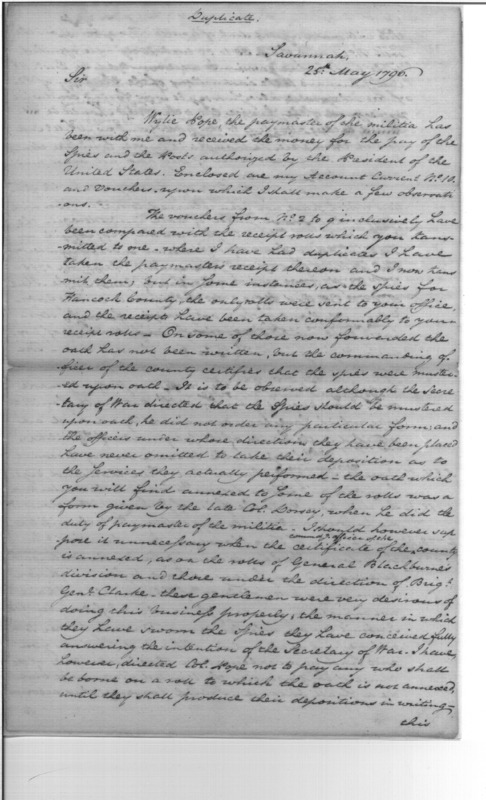 Duplicate.
Savannah,
25th May 1796.
Sir
Wylie Pope, the paymaster of the militia has
been with me and received the money for the pay of the
Spies and the Posts authorized by the President of the
United States. Enclosed are my Account Current No. 10.
and Vouchers, upon which I shall make a few observati
ons.
The vouchers from No. 2 to 9 inclusively have
been compared with the receipt rolls which you trans-
mitted to me - where I have had duplicates I have
taken the paymasters receipt thereon and I now trans
mit them; but in some instances, as the Spies for
Hancock County, the only rolls were sent to your office,
and the receipts have been taken conformably to your
receipt rolls - On some of those now forwarded the
oath has not been written, but the commanding of
ficer of the county certifies that the spies were muster-
ed upon oath - It is to be observed although the Secre
tary of War directed that the Spies should be mustered
upon oath, he did not order any particular form; and
the officers under whose directions they have been placed
have never omitted to take their deposition as to
the services they actually performed - the oath which
you will find annexed to some of the rolls was a
form given by the late Col. Dorsey, when he did the
duty of paymaster of the militia - I should however sup
pose it unnecessary when the certificate of the commdg. officer of the county
is annexed, as on the rolls of General Blackburne's
division and those under the direction of Brigr.
Genl. Clarke - these gentlemen were very desirous of
doing this business properly, the manner in which
they have sworn the Spies they have conceived fully
answering the intention of the Secretary of War. I have,
however, directed Col. Pope not to pay any who shall
be borne on a roll to which the oath is not annexed,
until they shall produce their depositions in writing -
this